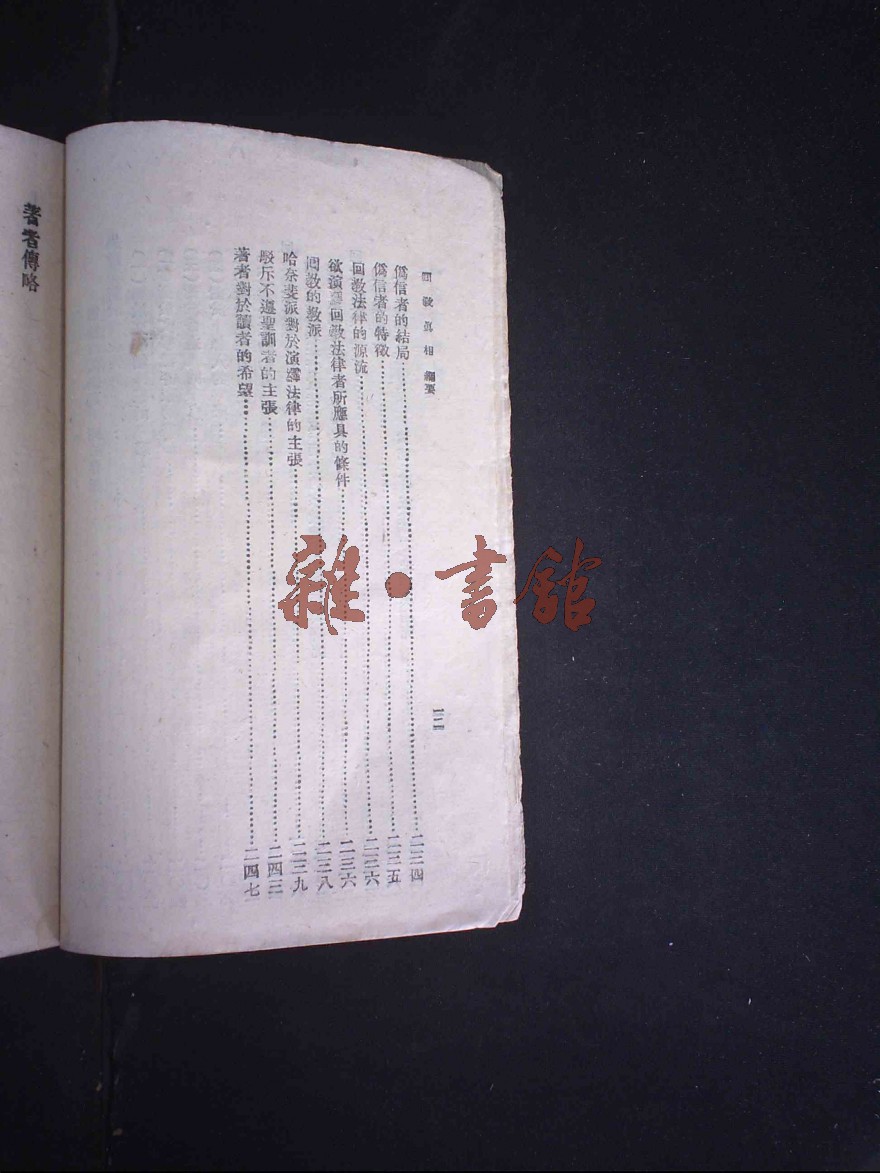 回教真相 綱要
一二
僞信者的結局…………二三四
僞信者的特徵…………二三五
回教法律的源流…………二三六
欲演繹回教法律者所應具的條件…………二三六
回教的教派…………二三八
哈奈斐派對於演繹法律的主張…………二三九
駁斥不遵聖訓者的主張…………二四三
著者對於讀者的希望…………二四七
著者傳略
雜·書館